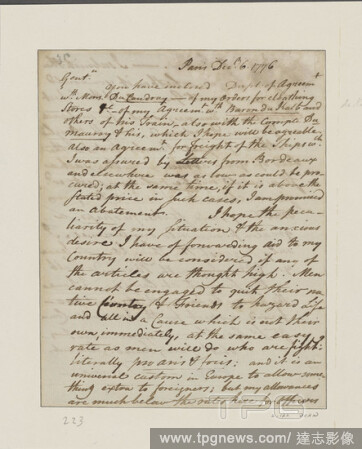 Paris Decr. 6. 1776
Gentn.
You have inclosed Dups. of Agreemt.
wth. Mons. Du Coudray — of my Orders for cloathing
Stores &c — of my Agreemt. wth. Baron du Kalb and
others of his Train, — also with the Compte De
Mauroy & his, which I hope will be agreeable
also an Agreemt. for freight of the Ships wch.
I was assured by Letters from Bordeaux
and elsewhere was as low as could be pro-
cured; at the same time, if it is above the
stated price in such cases, I am promised
an abatement. I hope the pecu-
liarity of my situation & the anxious
desire I have of forwarding aid to my
Country will be considered, if any of
the articles are thought high. Men
cannot be engaged to quit their na-
tive Country & Friends to hazard Life
and all in a Cause which is not their
own, immediately, at the same easy
rate as men will do who are fightg.
literally pro aris & focis; and it is an
universal custom in Europe to allow some
thing extra to foreigners; but my allowances
are much below the rates here for Officers
223
TPG
www.tpgnews.com / 達志影像